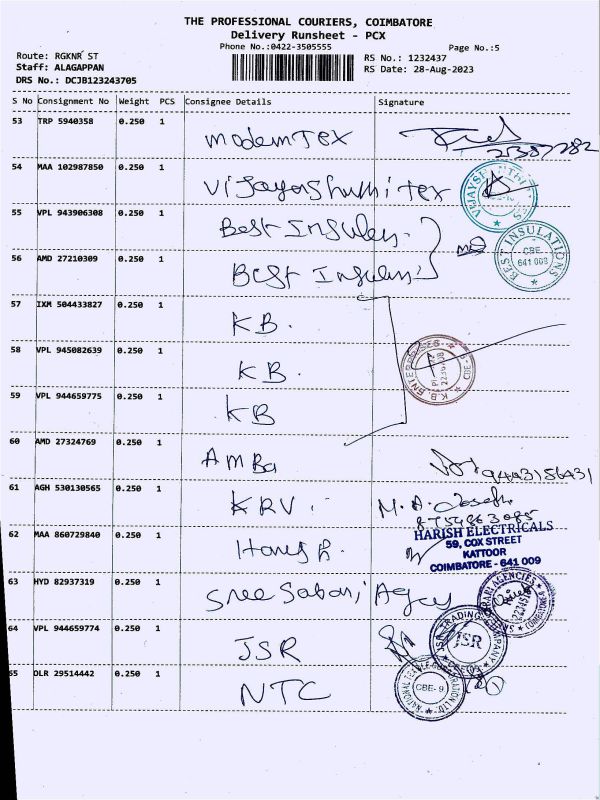 THE PROFESSIONAL COURIERS, COIMBATORE
Delivery Runsheet - PCX
Phone No.:0422-3505555
Page No.:5
Route: RGKNR ST
Staff: ALAGAPPAN
DRS No.: DCJB123243705
RS No.: 1232437
RS Date: 28-Aug-2023
S No Consignment No Weight PCS Consignee Details Signature
53 TRP 5940358 0.250 1
modern Tex
54 MAA 102987850 0.250 1
Vijayashunitex
55 VPL 943906308 0.250 1
Best Insulen.
56 AMD 27210309 0.250 1
BEST INSULATIONS
CBE
641 009
Best Insulans
57 IXM 504433827 0.250 1
KB.
58 VPL 945082639 0.250 1
KB.
K.B. ENTERPRISES
59 VPL 944659775 0.250 1
KB
60 AMD 27324769 0.250 1
AMBa
9443156431
61 AGH 530130565 0.250 1
KRV
M. A. Joseph
8754863085
62 MAA 860729840 0.250 1
Harish.
HARISH ELECTRICALS
59, COX STREET
KATTOOR
COIMBATORE - 641 009
63 HYD 82937319 0.250 1
Sree Sabari Agcy
64 VPL 944659774 0.250 1
JSR
JSR TRADING COMPANY
JSR
65 DLR 29514442 0.250 1
NTC
NATIONAL TEXTILE CORPORATION LTD.
CBE-9